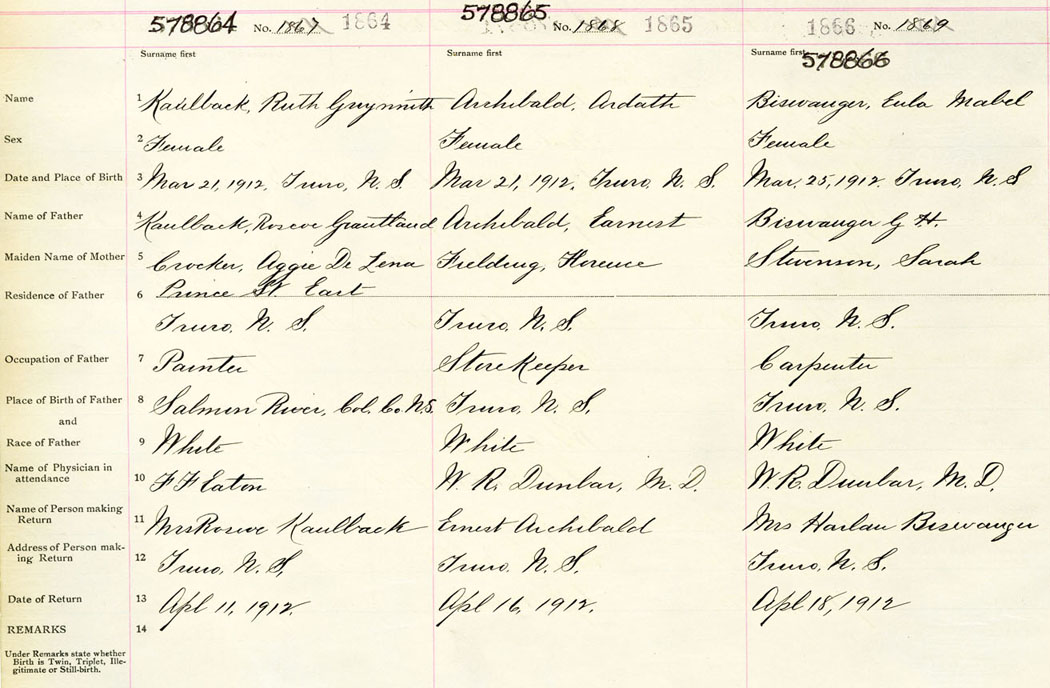 578864 No. 1867 1864 578865 No. 1868 1865 1866 No. 1869
Surname first Surname first Surname first 578866
Name 1 Kaulback, Ruth Gwynnith Archibald, Ardath Biswanger, Eula Mabel
Sex 2 Female Female Female
Date and Place of Birth 3 Mar 21, 1912, Truro, N. S. Mar 21, 1912, Truro, N. S. Mar. 25, 1912. Truro, N. S
Name of Father 4 Kaulback, Roscoe Grantland Archibald, Earnest Biswanger G. H.
Maiden Name of Mother 5 Crocker, Aggie De Lena Fielding, Florence Stevenson, Sarah
Residence of Father 6 Prince St. East
Truro, N. S. Truro, N. S. Truro, N. S.
Occupation of Father 7 Painter Store Keeper Carpenter
Place of Birth of Father 8 Salmon River, Col. Co. N.S. Truro, N. S. Truro, N. S.
and
Race of Father 9 White White White
Name of Physician in
attendance 10 F F Eaton W. R. Dunbar, M. D. W. R. Dunbar, M. D.
Name of Person making
Return 11 Mrs Roscoe Kaulback Ernest Archibald Mrs Harlan Biswanger
Address of Person mak-
ing Return 12 Truro, N. S, Truro, N. S. Truro, N. S.
Date of Return 13 Apl 11, 1912. Apl 16, 1912. Apl 18, 1912
REMARKS 14
Under Remarks state whether
Birth is Twin, Triplet, Ille-
gitimate or Still-birth.